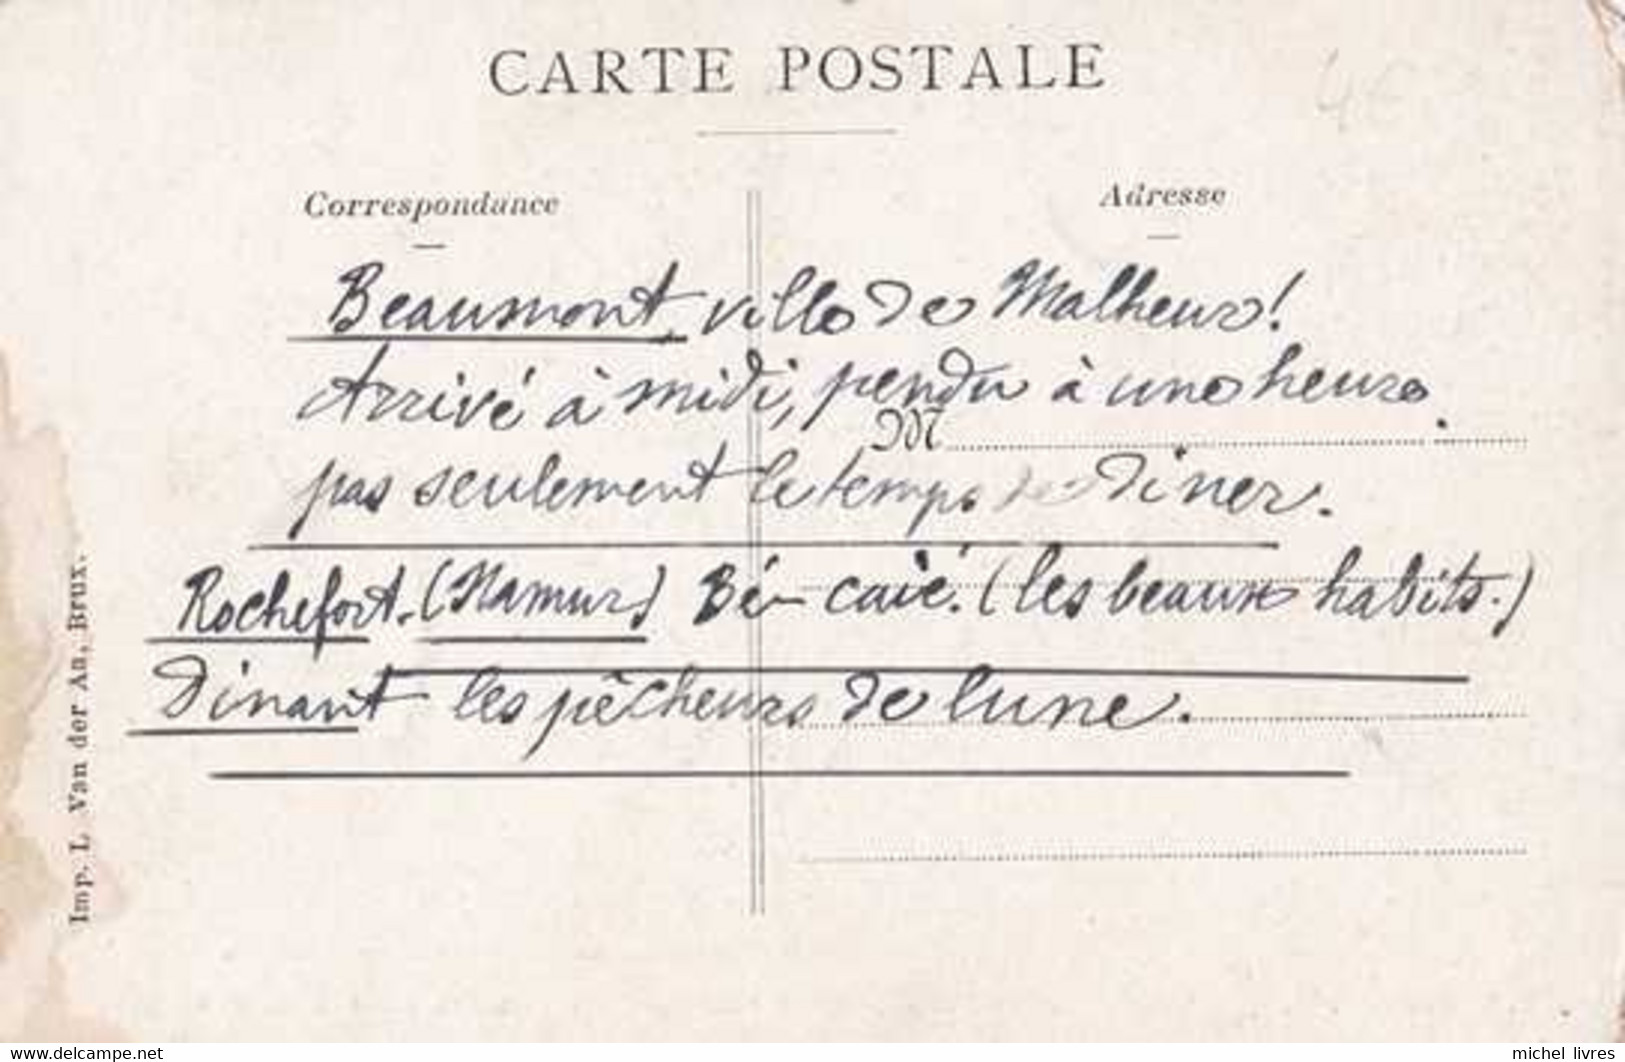 CARTE POSTALE
4€
Correspondance
Adresse
Beaumont, ville de Malheur!
Arrivé à midi, pendu à une heure.
M
pas seulement le temps de diner.
Rochefort. (Namur) Bé caié. (les beaux habits.)
Dinant les pêcheurs de lune.
Imp. L. Van der An, Brux.
www.delcampe.net
michel_livres